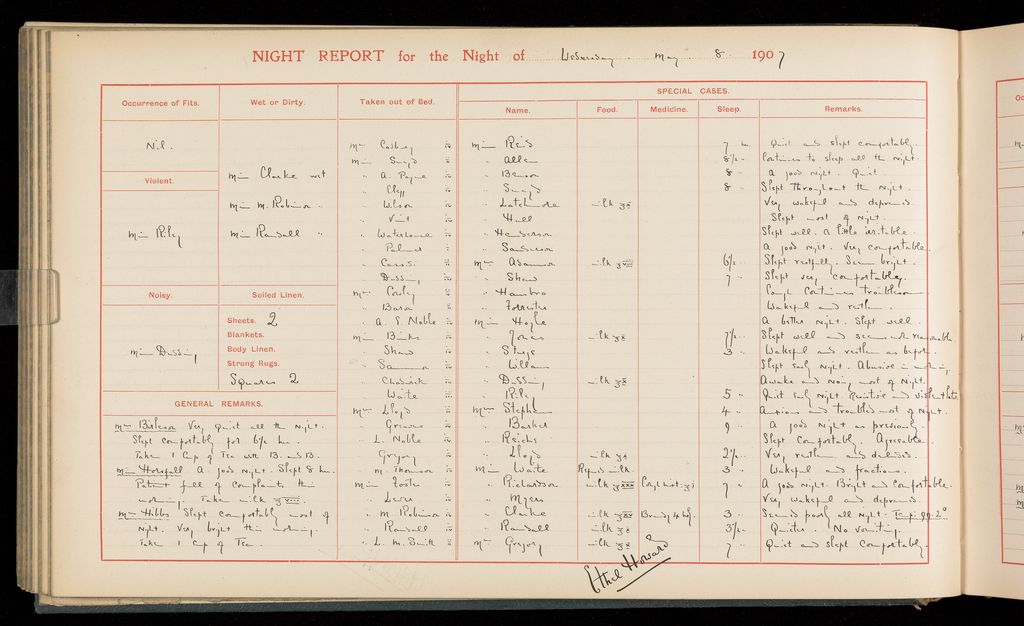 NIGHT REPORT for the Night of Wednesday. May 8 1907
SPECIAL CASES.
Occurrence of Fits. Wet or Dirty. Taken out of Bed. Name. Food. Medicine. Sleep. Remarks.
Nil.
Violent.
Miss Riley
Noisy.
Miss Dussing
Miss Clarke wet
Miss M. Robinson "
Miss Randall "
Soiled Linen.
Sheets. 2
Blankets.
Body Linen.
Strong Rugs.
Squares 2
GENERAL REMARKS.
Very quiet all the night.
Slept comfortably for 6½ hrs.
Taken 1 Cup of Tea with B. and B.
Miss Horsfall A good night. Slept 8 hrs.
Patient full of complaints this
morning, Taken milk
Mrs Hibbs Slept comfortably most of
night. Very bright this morning.
Taken 1 Cup of Tea.
Mrs
Miss
" A. Payne
" Clegg
" Wilson
" Vint
" Waterhouse
" Palmer
"
" Dussing
Mrs Cowley
"
" A. E. Noble
Miss Binks
" Shaw
"
" Chadwick
" Waite
Mrs Lloyd
" Greaves
" L. Noble
" Gregory
" M. Thomson
Miss
"
" M. Robinson
" Randall
" L. M. Smith
Miss Reid 7 hrs Quiet and slept comfortably.
" Allen 8½ " Continues to sleep all the night.
" Benson 8 " A good night. Quiet.
" 8 " Slept throughout the night.
" Latchmore milk Very wakeful and depressed.
" Hill Slept most of night.
" Henderson Slept well. A little irritable.
" Sanderson A good night. Very comfortable.
Mrs Adamson milk 6½ " Slept restfully. Seems bright.
" Shaw 7 " Slept very comfortably.
" Cough continues troublesome
" Forrester Wakeful and restless.
Miss Hoyle A better night. Slept well.
" Jones milk 7½ " Slept well and seems more reasonable.
" 3 " Wakeful and restless as before.
" Slept early night. Abusive in morning
" Dussing milk Awake and noisy most of night.
" Riley 5 " Quiet early night. and violent late
Mrs Stephen 4 " Anxious and troubled most of night.
" Barker 9 " A good night as previously.
" Slept comfortably. Agreeable.
" Lloyd milk 2½ " Very restless and delusive.
Miss Waite Refused milk. 3 " Wakeful and fractious.
" Richardson milk Cough mixt. 7 " A good night. Bright and comfortable.
" Myers Very wakeful and depressed.
" Clarke milk Brandy 3 " Seemed poorly all night. Temp: 99.2°
" Randall milk 3½ " Quieter. No vomiting.
Mrs Gregory milk 7 " Quiet and slept comfortably.
Ethel Howard